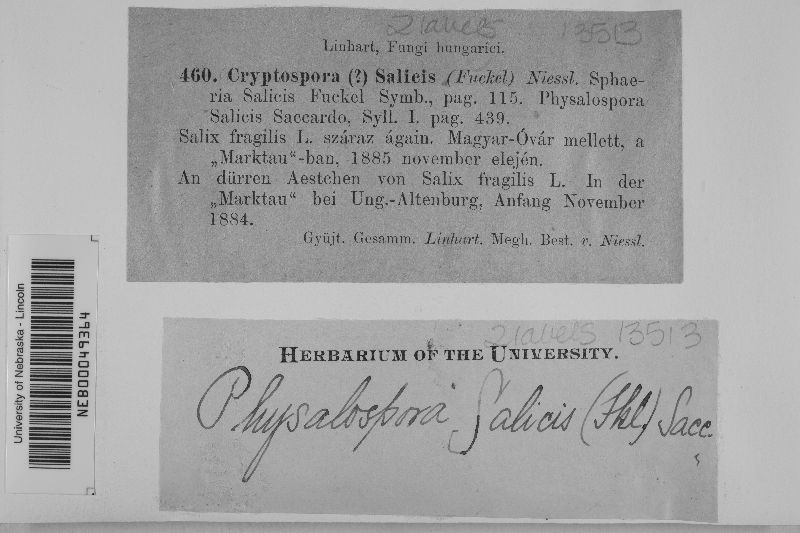 2 labels 13513
Linhart, Fungi hungarici.
460. Cryptospora (?) Salicis (Fuckel) Niessl. Sphae-
ria Salicis Fuckel Symb., pag. 115. Physalospora
Salicis Saccardo, Syll. I. pag. 439.
Salix fragilis L. száraz ágain. Magyar-Óvár mellett, a
„Marktau“-ban, 1885 november elején.
An dürren Aestchen von Salix fragilis L. In der
„Marktau“ bei Ung.-Altenburg, Anfang November
1884.
Gyüjt. Gesamm. Linhart. Megh. Best. v. Niessl.
University of Nebraska - Lincoln
NEB00049364
2 labels 13513
HERBARIUM OF THE UNIVERSITY.
Physalospora Salicis (Fkl) Sacc.